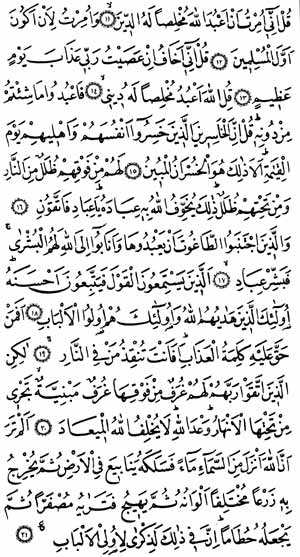 قُلْ اِنّٖٓي اُمِرْتُ اَنْ اَعْبُدَ اللّٰهَ مُخْلِصًا لَهُ الدّٖينَۙ ﴿١١﴾ وَاُمِرْتُ لِاَنْ اَكُونَ
اَوَّلَ الْمُسْلِمٖينَ ﴿١٢﴾ قُلْ اِنّٖٓي اَخَافُ اِنْ عَصَيْتُ رَبّٖي عَذَابَ يَوْمٍ
عَظٖيمٍ ﴿١٣﴾ قُلِ اللّٰهَ اَعْبُدُ مُخْلِصًا لَهُ دٖينٖيۙ ﴿١٤﴾ فَاعْبُدُوا مَا شِئْتُمْ
مِنْ دُونِهٖۜ قُلْ اِنَّ الْخَاسِرٖينَ الَّذٖينَ خَسِرُٓوا اَنْفُسَهُمْ وَاَهْلٖيهِمْ يَوْمَ
الْقِيٰمَةِۜ اَلَا ذٰلِكَ هُوَ الْخُسْرَانُ الْمُبٖينُ ﴿١٥﴾ لَهُمْ مِنْ فَوْقِهِمْ ظُلَلٌ مِنَ النَّارِ
وَمِنْ تَحْتِهِمْ ظُلَلٌۜ ذٰلِكَ يُخَوِّفُ اللّٰهُ بِهٖ عِبَادَهُۜ يَا عِبَادِ فَاتَّقُونِ ﴿١٦﴾
وَالَّذٖينَ اجْتَنَبُوا الطَّاغُوتَ اَنْ يَعْبُدُوهَا وَاَنَابُٓوا اِلَى اللّٰهِ لَهُمُ الْبُشْرٰىۚ
فَبَشِّرْ عِبَادِۙ ﴿١٧﴾ اَلَّذٖينَ يَسْتَمِعُونَ الْقَوْلَ فَيَتَّبِعُونَ اَحْسَنَهُۜ
اُو۬لٰٓئِكَ الَّذٖينَ هَدٰيهُمُ اللّٰهُ وَاُو۬لٰٓئِكَ هُمْ اُو۬لُوا الْاَلْبَابِ ﴿١٨﴾ اَفَمَنْ
حَقَّ عَلَيْهِ كَلِمَةُ الْعَذَابِۜ اَفَاَنْتَ تُنْقِذُ مَنْ فِي النَّارِۚ ﴿١٩﴾ لٰكِنِ
الَّذٖينَ اتَّقَوْا رَبَّهُمْ لَهُمْ غُرَفٌ مِنْ فَوْقِهَا غُرَفٌ مَبْنِيَّةٌۙ تَجْرٖي
مِنْ تَحْتِهَا الْاَنْهَارُۜ وَعْدَ اللّٰهِۜ لَا يُخْلِفُ اللّٰهُ الْمٖيعَادَ ﴿٢٠﴾ اَلَمْ تَرَ
اَنَّ اللّٰهَ اَنْزَلَ مِنَ السَّمَٓاءِ مَٓاءً فَسَلَكَهُ يَنَابٖيعَ فِي الْاَرْضِ ثُمَّ يُخْرِجُ
بِهٖ زَرْعًا مُخْتَلِفًا اَلْوَانُهُ ثُمَّ يَهٖيجُ فَتَرٰيهُ مُصْفَرًّا ثُمَّ
يَجْعَلُهُ حُطَامًاۜ اِنَّ فٖي ذٰلِكَ لَذِكْرٰى لِاُو۬لِي الْاَلْبَابِ ﴿٢١﴾